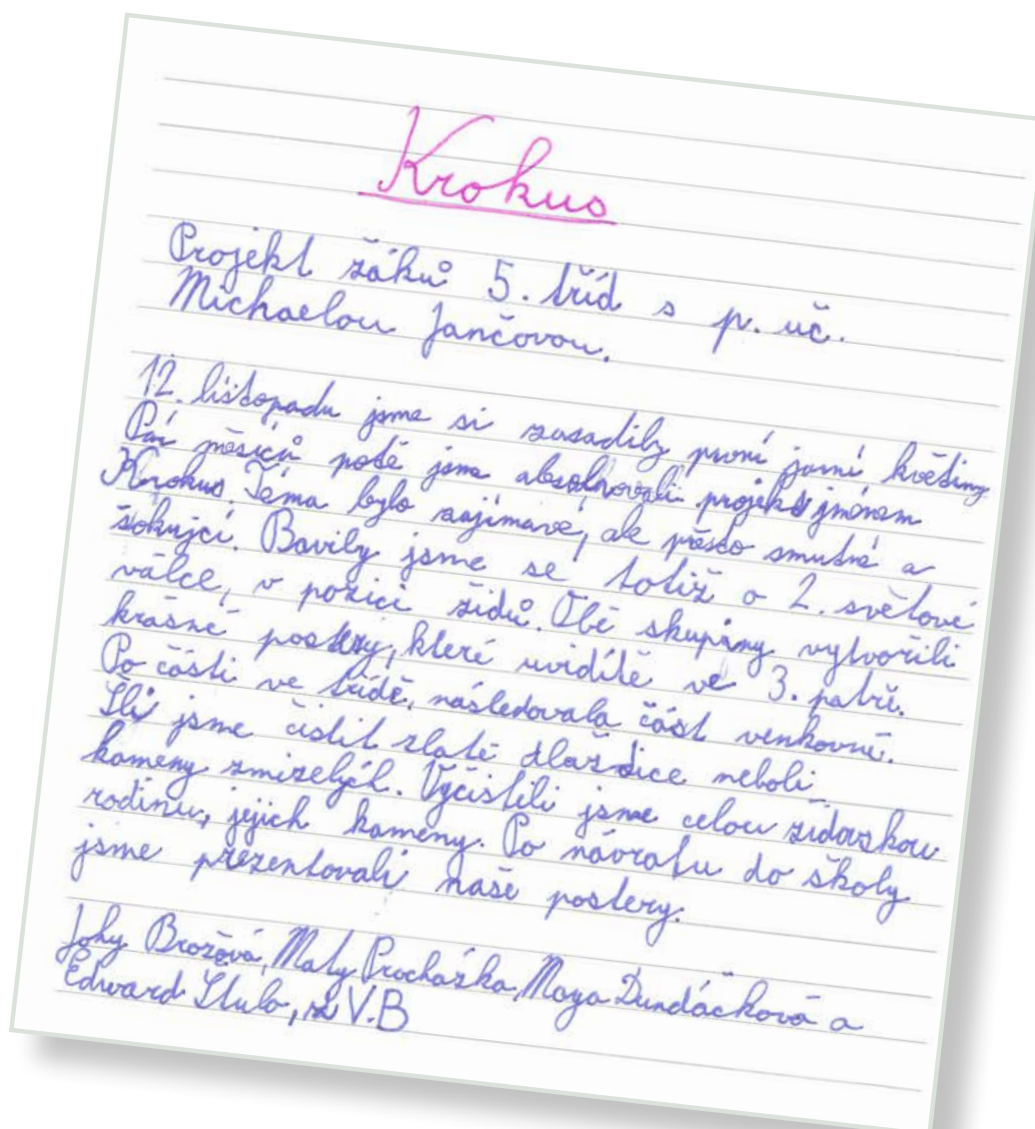 Krokus
Projekt žáků 5. tříd s p. uč.
Michaelou Jančovou.
12. listopadu jsme si zasadily první jarní květiny
Pár měsíců poté jsme absolvovali projekt jménem
Krokus. Téma bylo zajímavé, ale přesto smutné a
šokující. Bavily jsme se totiž o 2. světové
válce, v pozici židů. Obě skupiny vytvořili
krásné postery, které uvidítě ve 3. patře.
Po části ve třídě, následovala část venkovní.
Šli jsme čistit zlaté dlaždice neboli
kameny zmizelých. Vyčistili jsme celou židovskou
rodinu, jejich kameny. Po návratu do školy
jsme prezentovali naše postery.
Johy Brožová, Maty Procházka, Maya Dundáčková a
Edward Stulo, z V.B